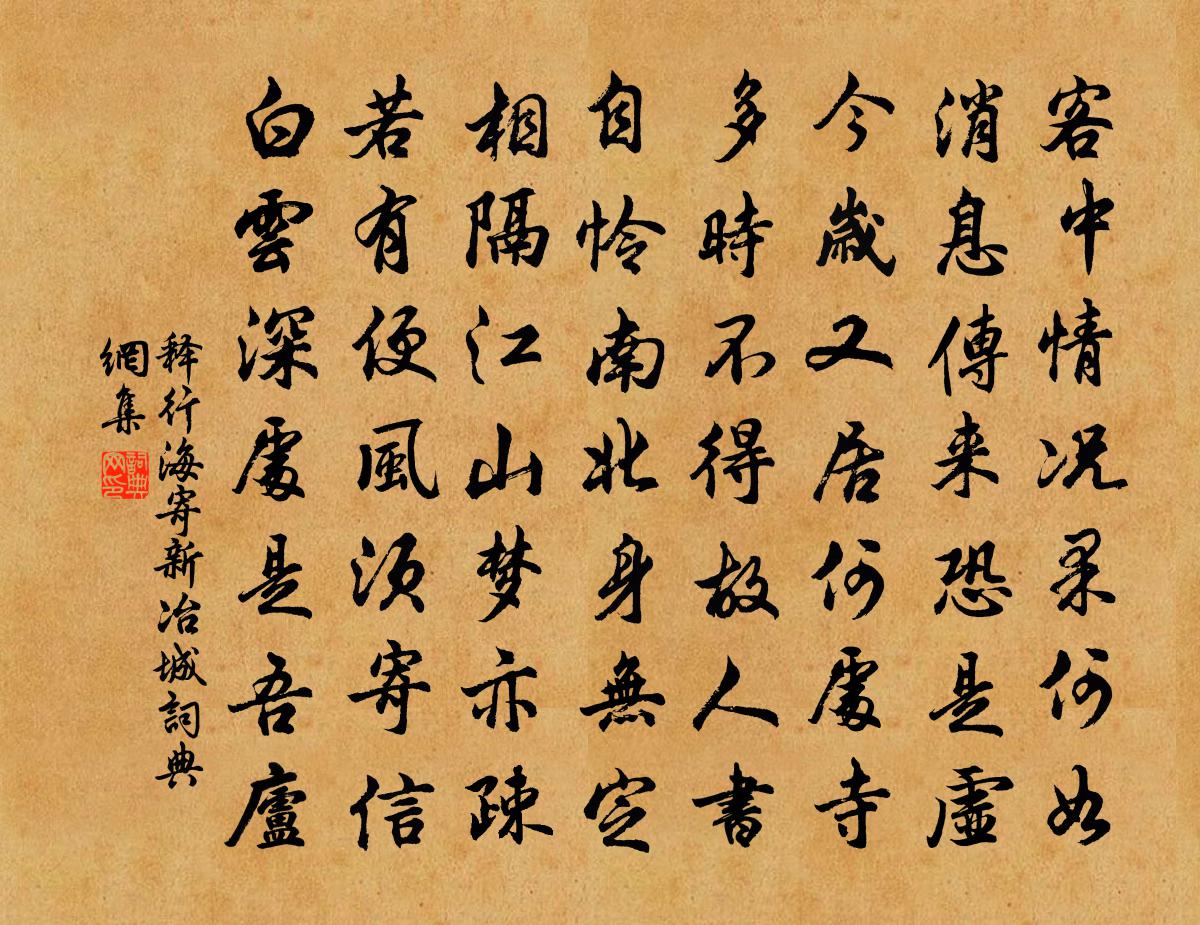 客中情况果何如
消息傳来恐是虛
今歲又居何處寺
多時不得故人書
自怜南北身無定
相隔江山梦亦疎
若有便風须寄信
白雲深處是吾廬
释行海寄新冶城詞典
網集
詞典
网印